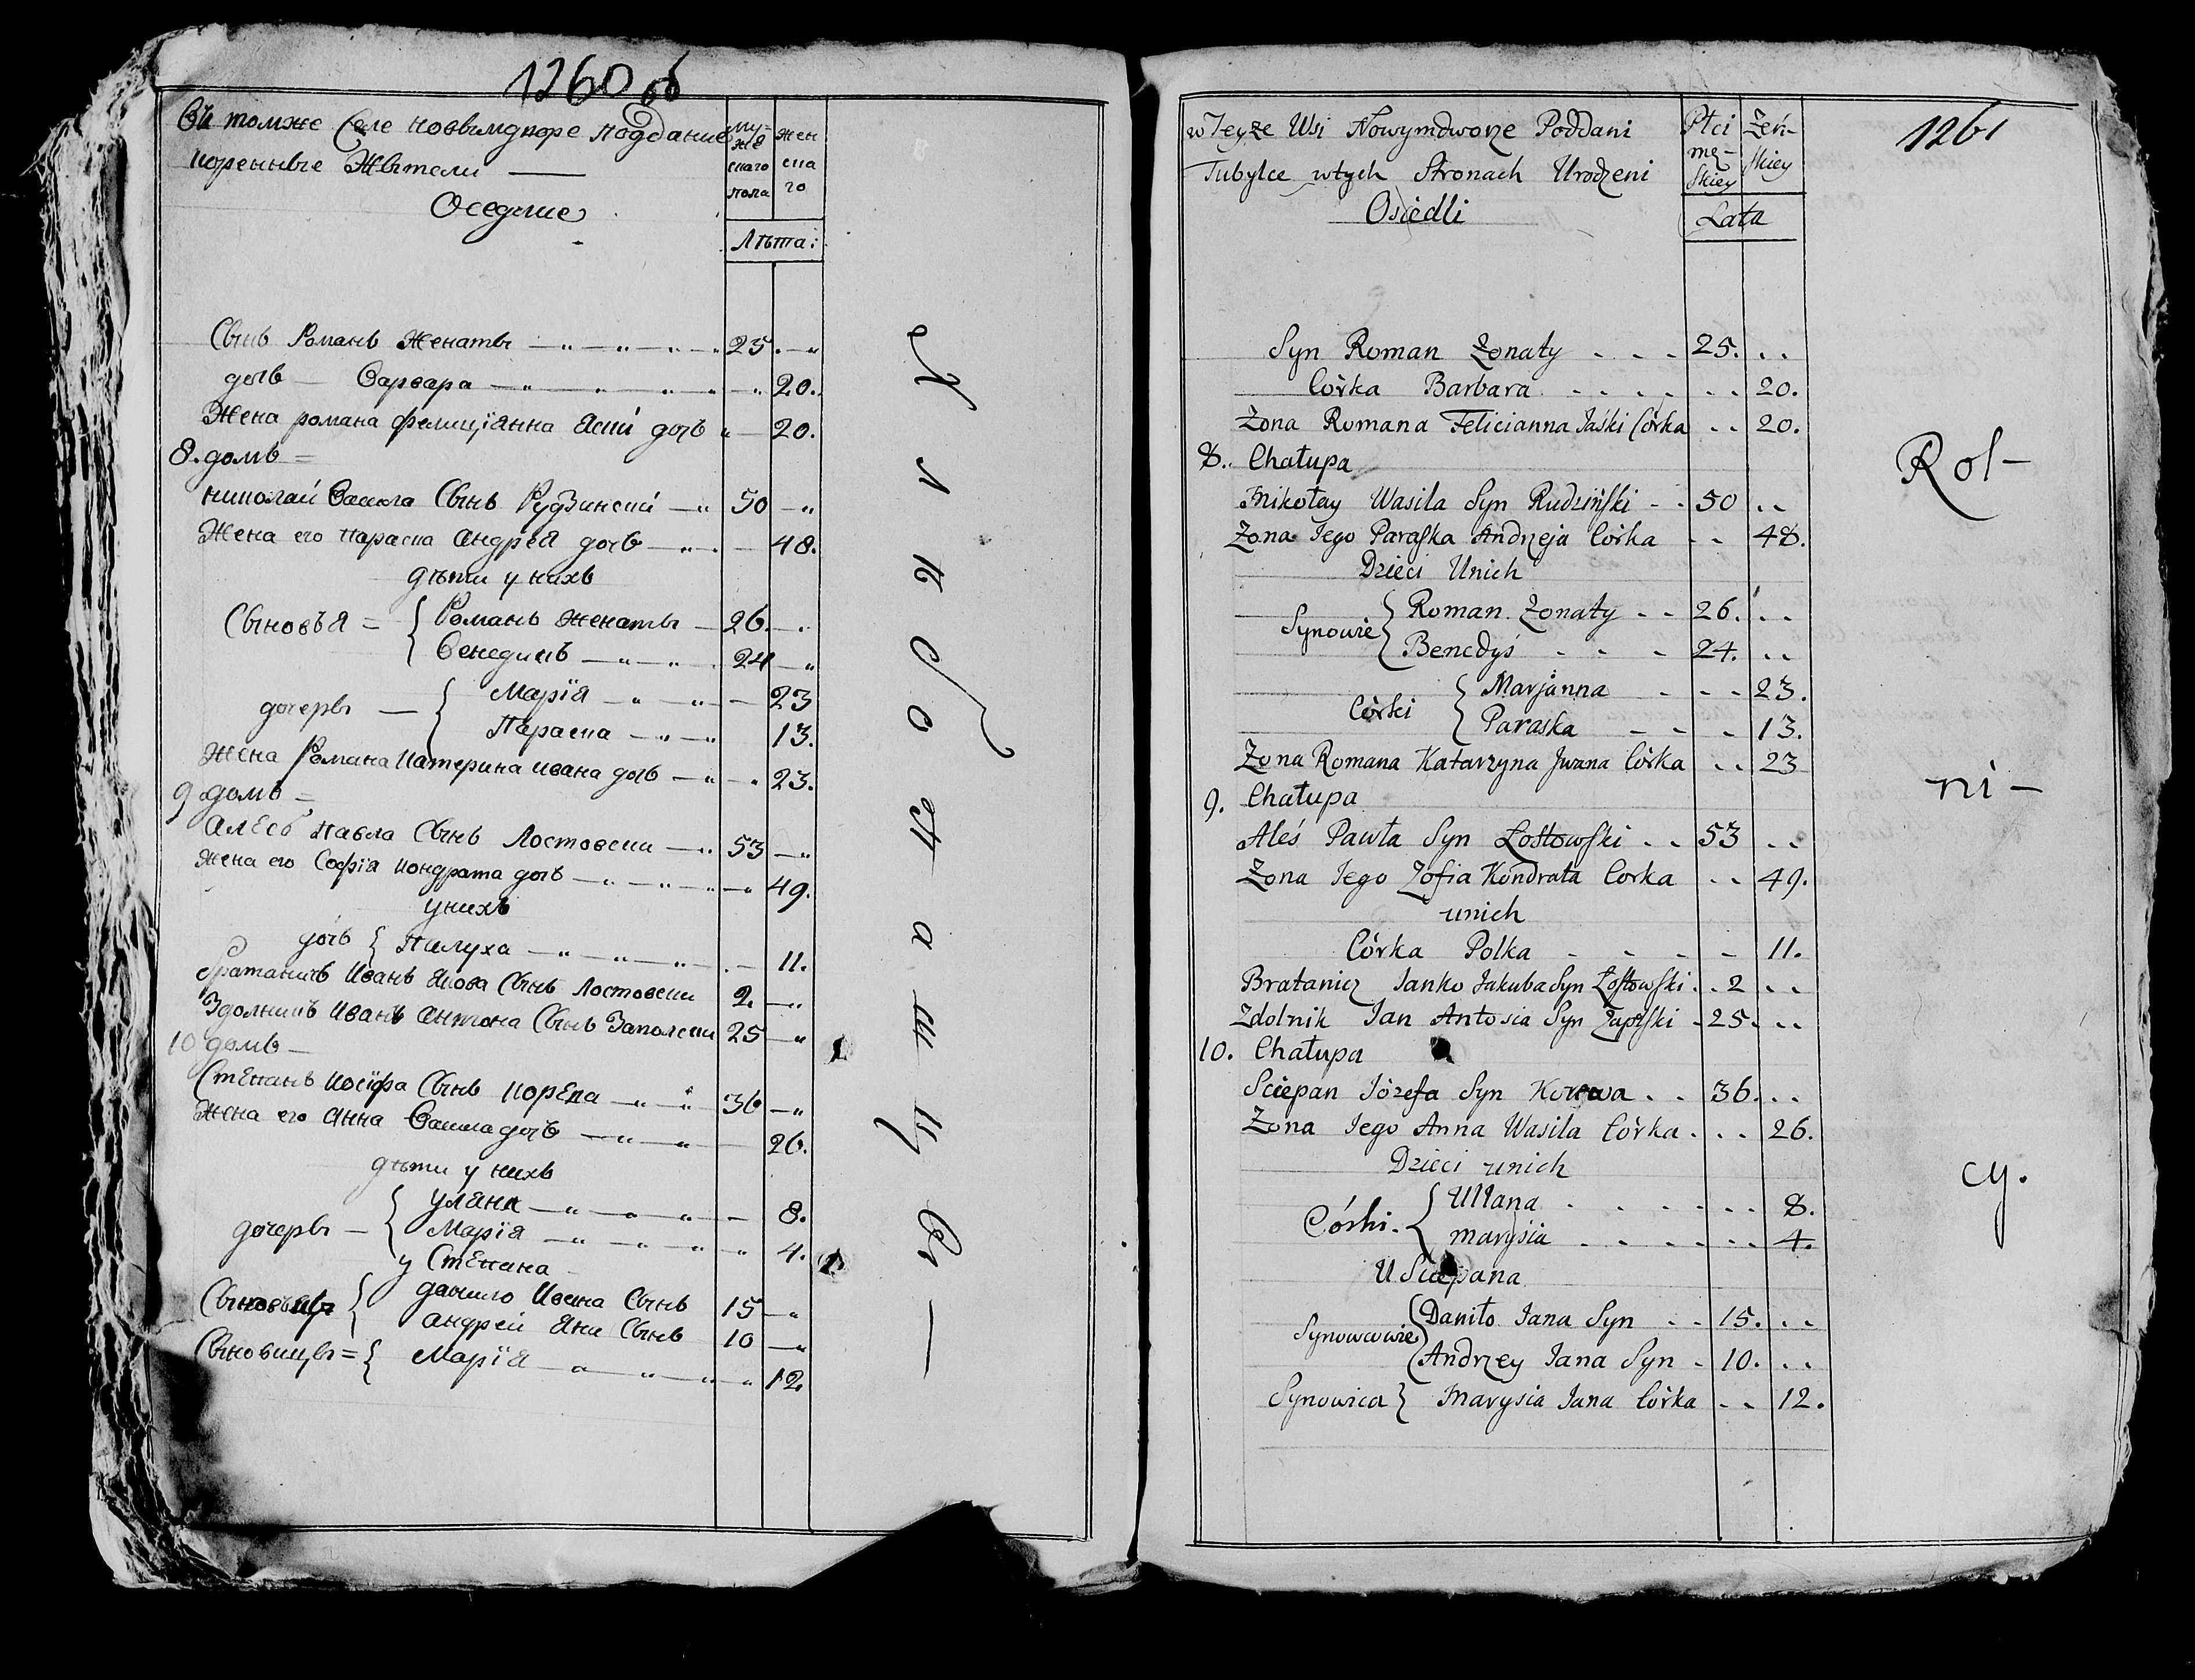 1260 об
Въ томже Селе новвимдворе поддание
коренные Жытели
Оседлие
му-
же
скаго
пола
жен
ска
го
Лѣта:
Сынъ Романъ Женаты 25.
дочь Варвара 20.
Жена романа фелицїянна Яски дочъ 20.
8. домъ =
николай Василя Сынъ Рудзински 50
Жена его параска Андрея дочъ 48.
дѣти у нихъ
Сыновья = { Романъ женаты 26.
Бенедикъ 24
дочеры { Марїя 23
Параска 13.
Жена Романа Катерина ивана дочь 23.
9 домъ =
Алесь павла Сынъ Лостовски 53
жена его Софїя кондрата дочь 49.
унихъ
дочь { Палуха 11.
Братаничъ Иванъ Якова Сынъ Лостовски 2.
Здолникъ Иванъ Антона Сынъ Заполски 25
10 домъ
Степанъ Иосифа Сынъ корева 36
жена его Анна Василя дочъ 26.
дѣти у нихъ
дочеры { Уляна 8.
Марїя 4.
у Степана
{ данило Ивана Сынъ 15
Андрей Яна Сынъ 10
Сыновицы = { Марїя 12.
w Teyże Wsi Nowymdworze Poddani
Tubylce wtych Stronach Urodzeni
Osiedli
Płci
mę-
skiey
Żeń-
skiey
Lata
1261
Syn Roman Żonaty 25.
Córka Barbara 20.
Żona Romana Felicianna Jaśki Córka 20.
8. Chałupa
Mikołay Wasila Syn Rudziński 50
Żona Jego Paraska Andrzeja Córka 48.
Dzieci Unich
Synowie { Roman Żonaty 26.
Benedyś 24.
Córki { Marjanna 23.
Paraska 13.
Żona Romana Katarzyna Jwana Córka 23
9. Chałupa
Aleś Pawła Syn Łostowski 53
Żona Jego Zofia Kondrata Corka 49.
unich
Córka Polka 11.
Bratanicz Janko Jakuba Syn Łostowski 2
Zdolnik Jan Antosia Syn Zapolski 25.
10. Chałupa
Sciepan Józefa Syn Korewa 36.
Żona Jego Anna Wasila Córka 26.
Dzieci unich
Córki { Ullana 8.
Marysia 4.
U Sciepana
Synowcowie { Daniło Jana Syn 15.
Andrzey Jana Syn 10.
Synowica } Marysia Jana Córka 12.
Rol-
ni-
cy.